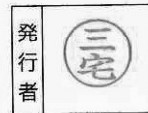 発行者
三宅